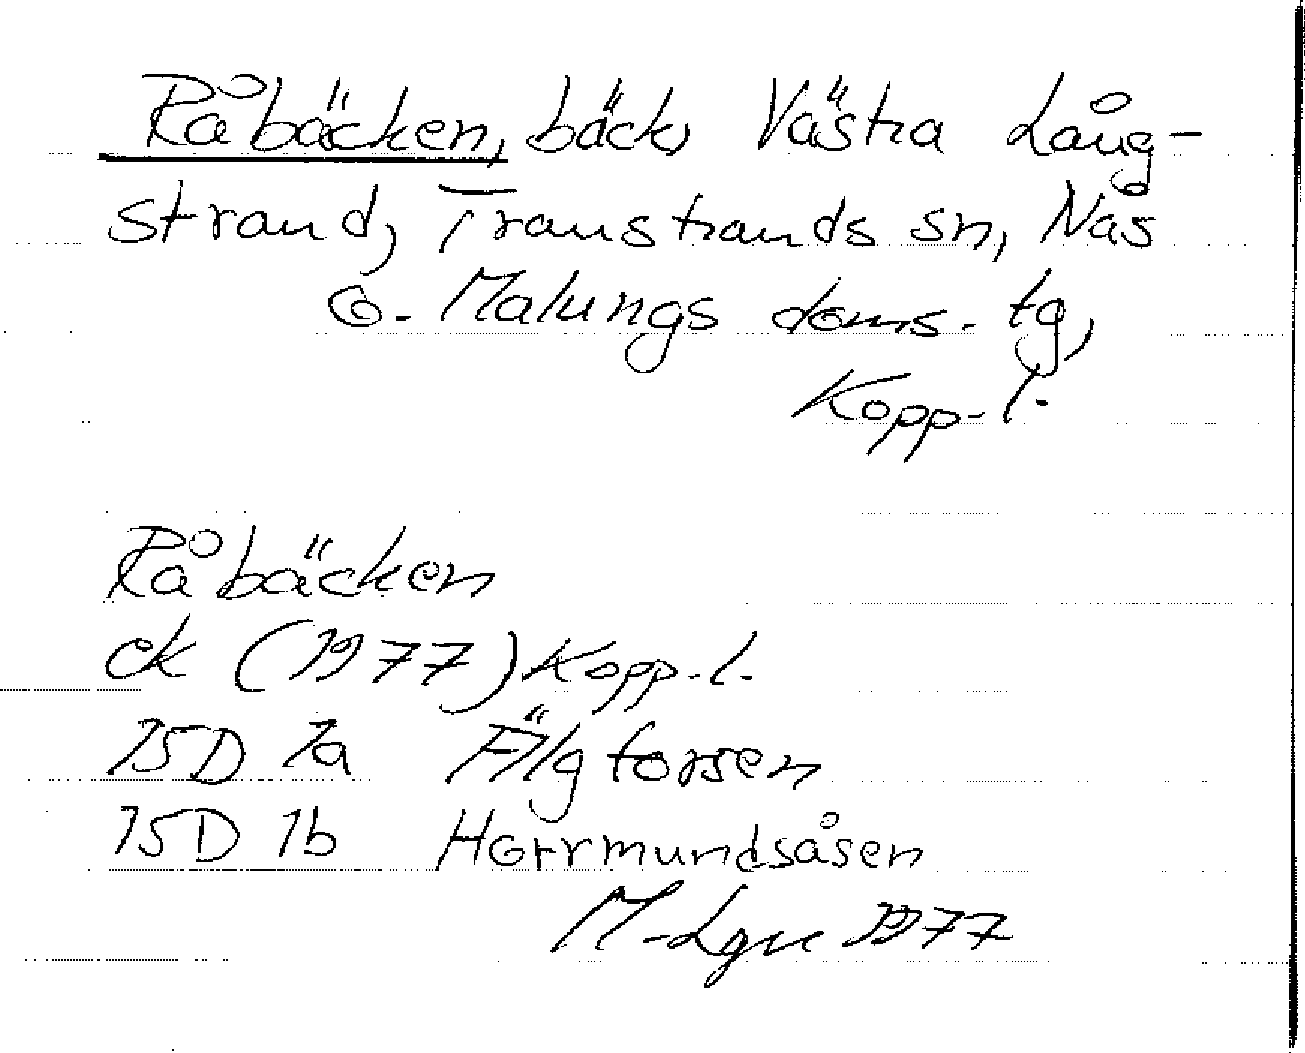 Råbäcken, bäck, Västra Lång-
strand, Transtrands sn, Nås
o. Malungs doms. tg,
Kopp. l.
Råbäcken
ek (1977) Kopp. l.
15D 1a Älgforsen
15D 1b Horrmundsåsen
1977